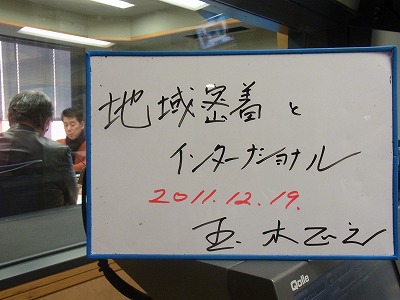 地域密着と
インターナショナル
2011.12.19.
玉木正之
Qolle